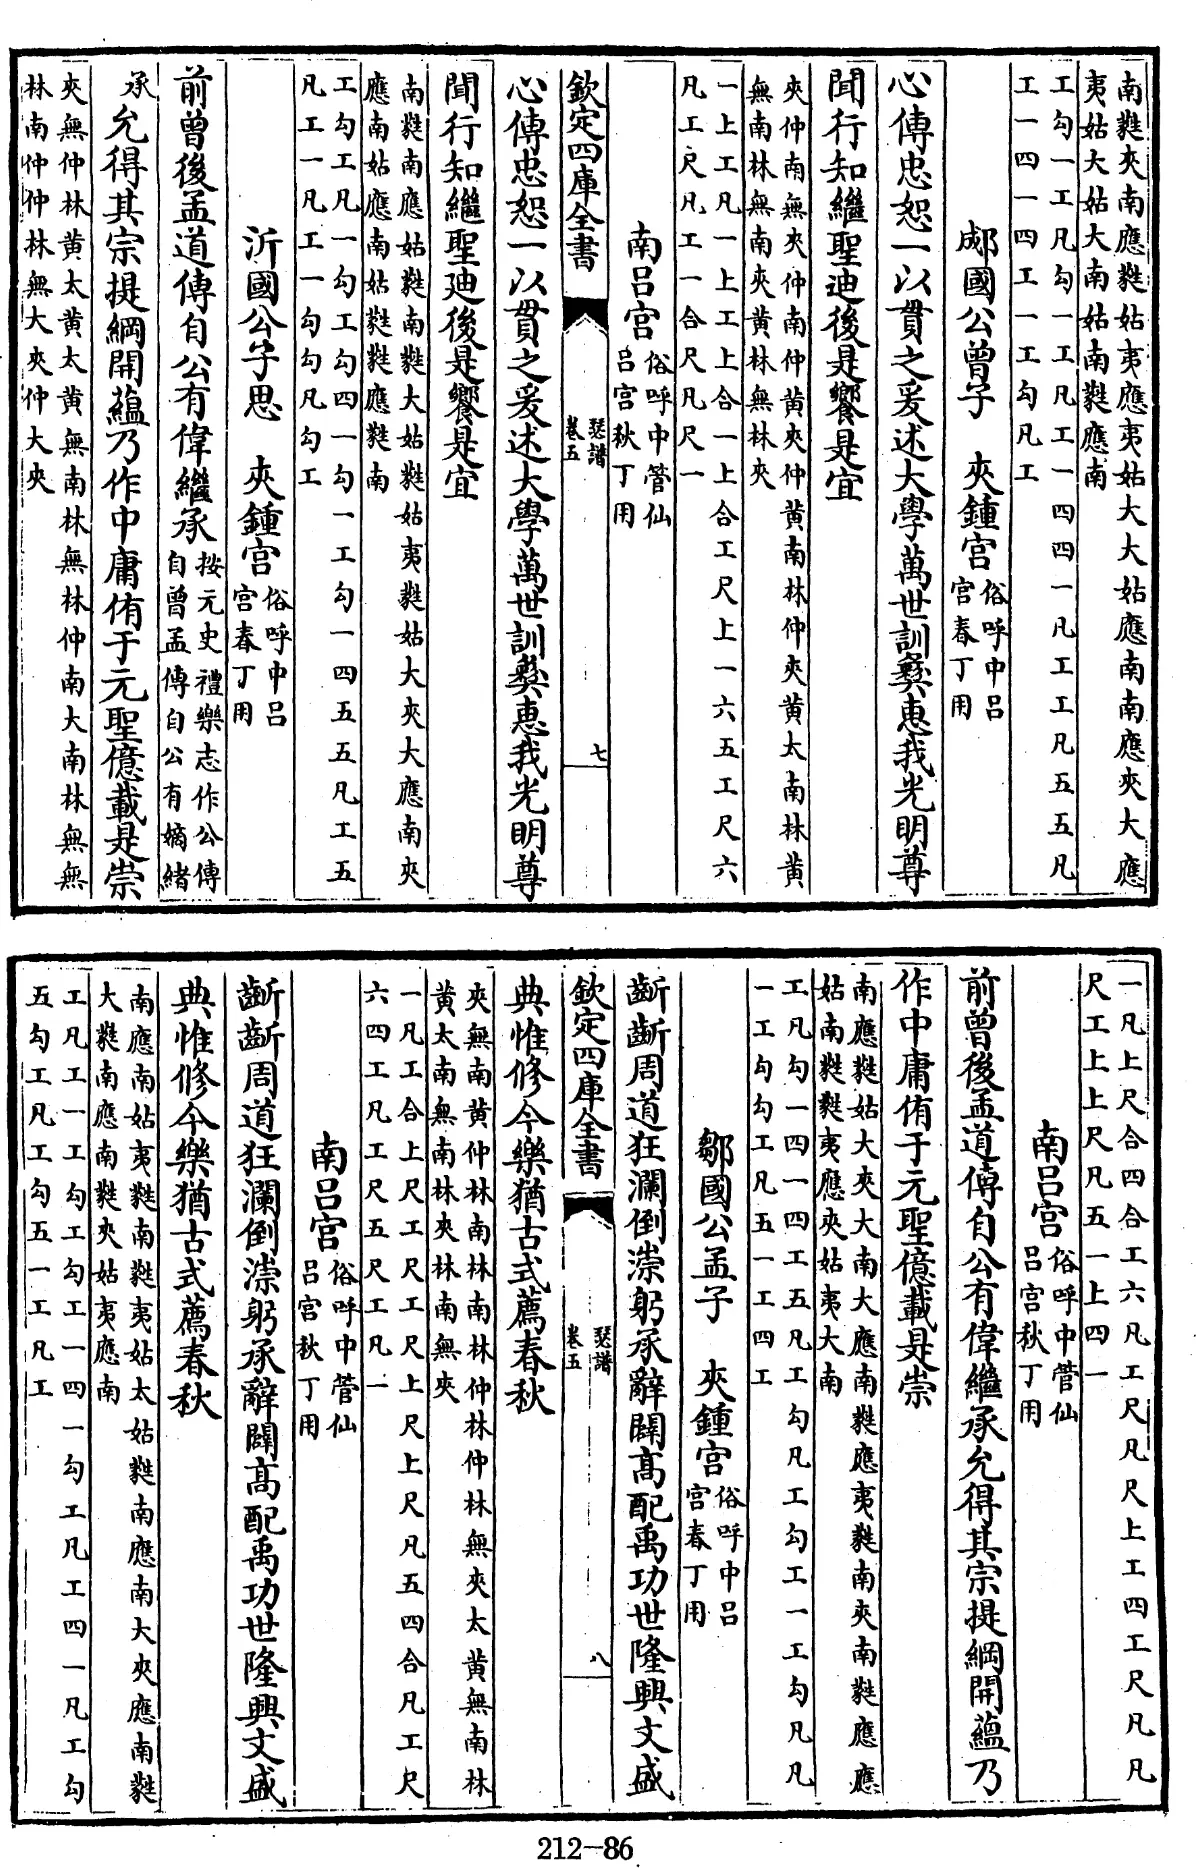 南蕤夾南應蕤姑夷應夷姑大大姑應南南應夾大應
夷姑大姑大南姑南蕤應南
工勾一工凡勾一工凡工一四四一凡工工凡五五凡
工一四一四工一工勾凡工
郕國公曾子　夾鍾宫俗呼中吕
宫春丁用
心傳忠恕一以貫之爰述大學萬世訓彝惠我光明尊
聞行知繼聖廸後是饗是宜
夾仲南無夾仲南仲黄夾仲黄南林仲夾黄太南林黄
無南林無南夾黄林無林夾
一上工凡一上工上合一上合工尺上一六五工尺六
凡工尺凡工一合尺凡尺一
南吕宫俗呼中管仙
吕宫秋丁用
欽定四庫全書
瑟譜
卷五
七
心傳忠恕一以貫之爰述大學萬世訓彝惠我光明尊
聞行知繼聖廸後是饗是宜
南蕤南應姑蕤南蕤大姑蕤姑夷蕤姑大夾大應南夾
應南姑應南姑蕤蕤應蕤南
工勾工凡一勾工勾四一勾一工勾一四五五凡工五
凡工一凡工一勾勾凡勾工
沂國公子思　夾鍾宫俗呼中吕
宫春丁用
前曾後孟道傳自公有偉繼承按元史禮樂志作公傳
自曾孟傳自公有嫡緒
承允得其宗提綱開蘊乃作中庸侑于元聖億載是崇
夾無仲林黄太黄太黄無南林無林仲南大南林無無
林南仲仲林無大夾仲大夾
一凡上尺合四合工六凡工尺凡尺上工四工尺凡凡
尺工上上尺凡五一上四一
南吕宫俗呼中管仙
吕宫秋丁用
前曾後孟道傳自公有偉繼承允得其宗提綱開蘊乃
作中庸侑于元聖億載是崇
南應蕤蕤姑大夾大南大應南蕤應夷蕤南夾南蕤應應
姑南蕤蕤夷應夾姑夷大南
工凡勾一四一四工五凡工勾凡工勾工一工勾凡凡
一工勾勾工凡五一工四工
鄒國公孟子　夾鍾宫俗呼中吕
宫春丁用
齗齗周道狂瀾倒漴躬承辭闢髙配禹功世隆興文盛
欽定四庫全書
瑟譜
卷五
八
典惟修今樂猶古式薦春秋
夾無南黄仲林南林南林仲林仲林無夾太黄無南林
黄太南無南林夾林南無夾
一凡工合上尺工尺工尺上尺上尺凡五四合凡工尺
六四工凡工尺五尺工凡一
南吕宫俗呼中管仙
吕宫秋丁用
齗齗周道狂瀾倒漴躬承辭闢髙配禹功世隆興文盛
典惟修今樂猶古式薦春秋
南應南姑夷蕤南蕤夷姑太姑蕤南應南大夾應南蕤
大蕤南應南蕤夾姑夷應南
工凡工一工勾工勾工一四一勾工凡工四一凡工勾
五勾工凡工勾五一工凡工
212-86